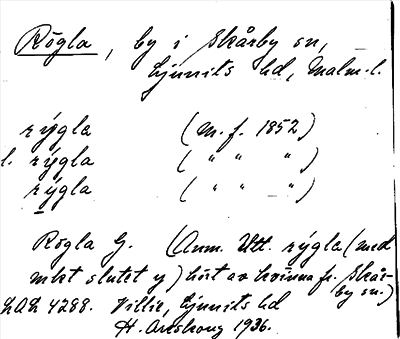 Rögla, by i Skårby sn,
Ljunits hd, Malm.l.
rýgla (m.f. 1852)
l. rýgla ( " " " )
rýgla ( " " " )
Rögla G. (Anm. Utt. rýgla (med
mkt slutet y) hört av kvinna fr. Skår-
by sn.)
LAL 4288. Villie, Ljunits hd
H. Areskoug 1936.